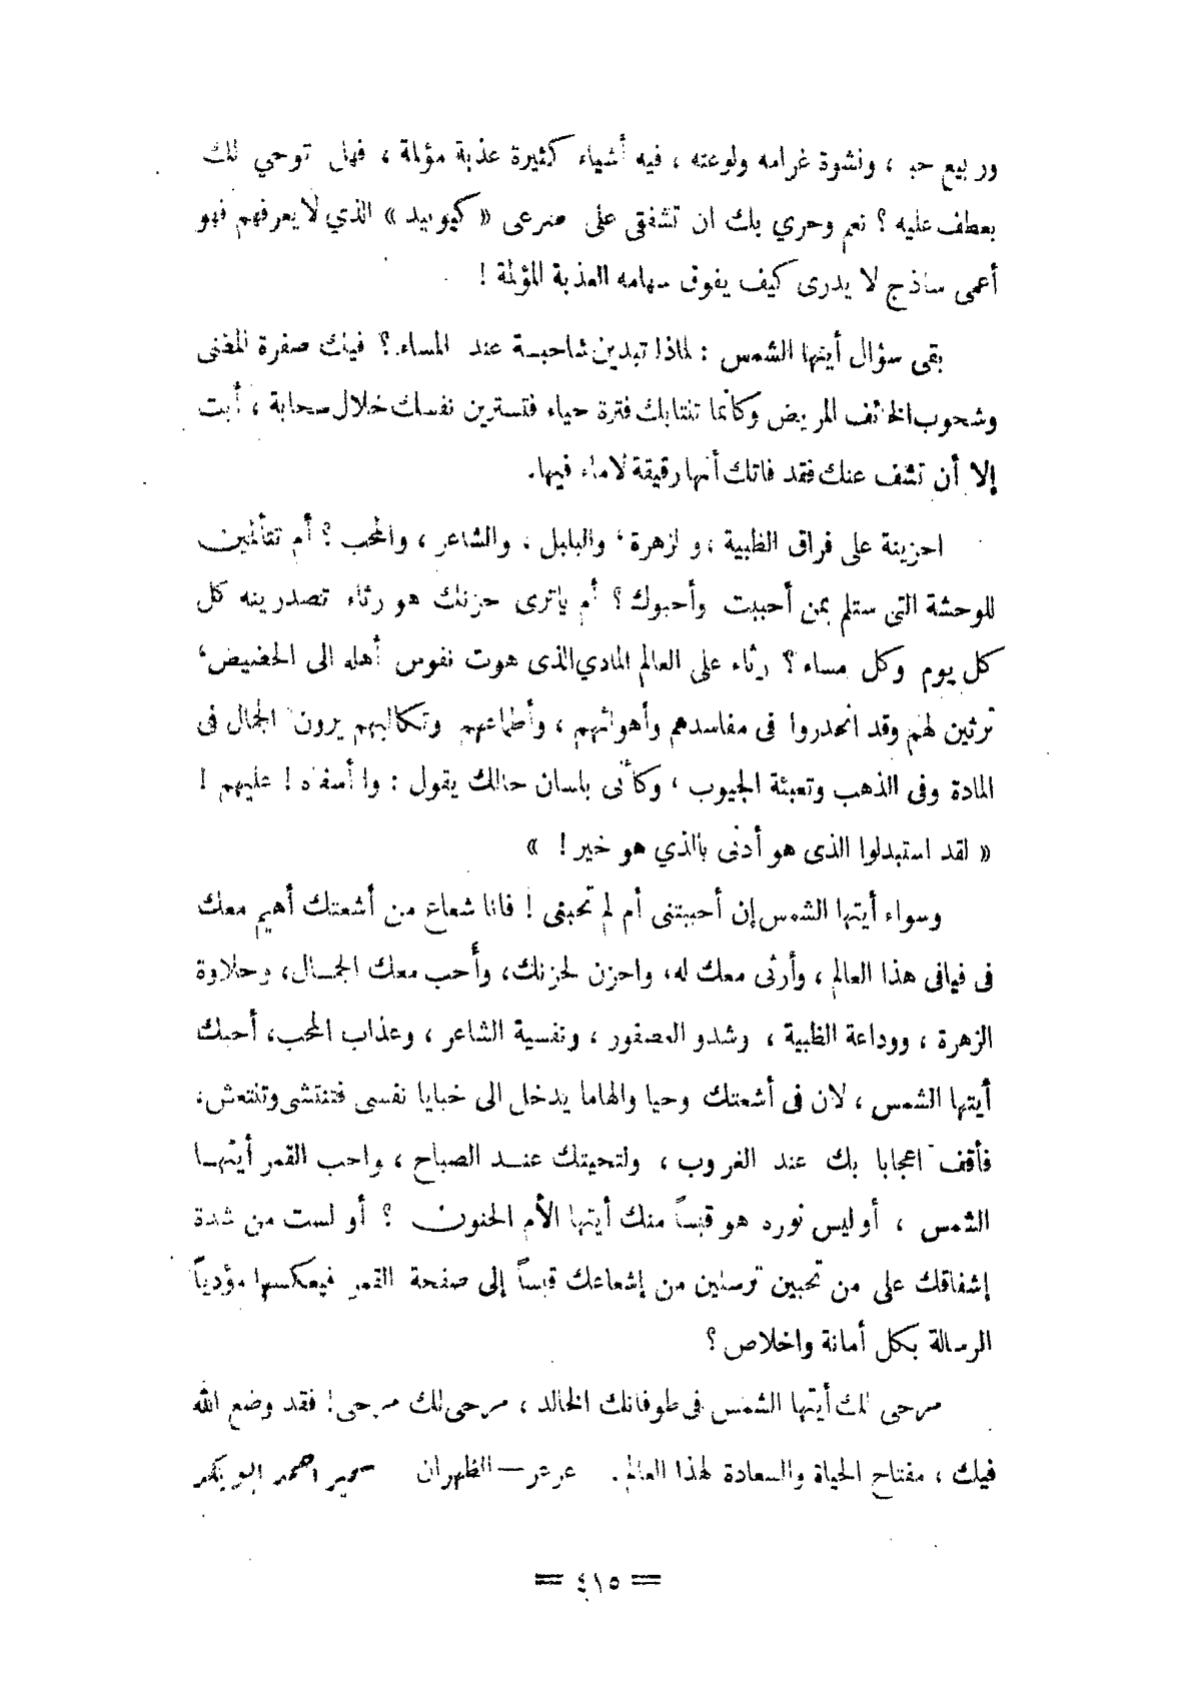 وربيع حبه ، ونشوة غرامه ولوعته ، فيه أشياء كثيرة عذبة مؤلمة ، فهل توحي لك
بعطف عليه ؟ نعم وحري بك ان تشفقى على صرعى « كيوبيد » الذي لا يعرفهم فهو
أعمى ساذج لا يدرى كيف يفوق سهامه العذبة المؤلمة !
بقى سؤال أيتها الشمس : لماذا تبدين شاحبة عند المساء ؟ فيك صفرة المضنى
وشحوب الخائف المريض وكأنما تنتابك فترة حياء فتسترين نفسك خلال سحابة ، أبت
إلا أن تشف عنك فقد فاتك أنها رقيقة لاماء فيها .
احزينة على فراق الظبية ، والزهرة ، والبلبل ، والشاعر ، والمحب ؟ أم تتألمين
للوحشة التى ستلم بمن أحببت وأحبوك ؟ أم ياترى حزنك هو رثاء تصدرينه كل
كل يوم وكل مساء ؟ رثاء على العالم المادي الذى هوت نفوس أهله الى الحضيض ،
ترثين لهم وقد انحدروا فى مفاسدهم وأهوائهم ، وأطماعهم وتكالبهم يرون الجمال فى
المادة وفى الذهب وتعبئة الجيوب ، وكأنى بلسان حالك يقول : وا أسفاه ! عليهم !
« لقد استبدلوا الذى هو أدنى بالذي هو خير ! »
وسواء أيتها الشمس إن أحببتنى أم لم تحبنى ! فانا شعاع من أشعتك أهيم معك
فى فيافى هذا العالم ، وأرثى معك له ، واحزن لحزنك ، وأحب معك الجمال ، وحلاوة
الزهرة ، ووداعة الظبية ، وشدو العصفور ، ونفسية الشاعر ، وعذاب المحب ، أحبك
أيتها الشمس ، لان فى أشعتك وحيا والهاما يدخل الى خبايا نفسى فتنتشى وتنتعش ،
فأقف اعجابا بك عند الغروب ، ولتحيتك عند الصباح ، واحب القمر أيتها
الشمس ، أو ليس نوره هو قبساً منك أيتها الأم الحنون ؟ أو لست من شدة
إشفاقك على من تحبين ترسلين من إشعاعك قبساً إلى صفحة القمر فيعكسها مؤدياً
الرسالة بكل أمانة واخلاص ؟
مرحى لك أيتها الشمس فى طوفانك الخالد ، مرحى لك مرحى ! فقد وضع الله
فيك ، مفتاح الحياة والسعادة لهذا العالم . عرعر — الظهران سمير احمد ابو بكر
= ٤١٥ =